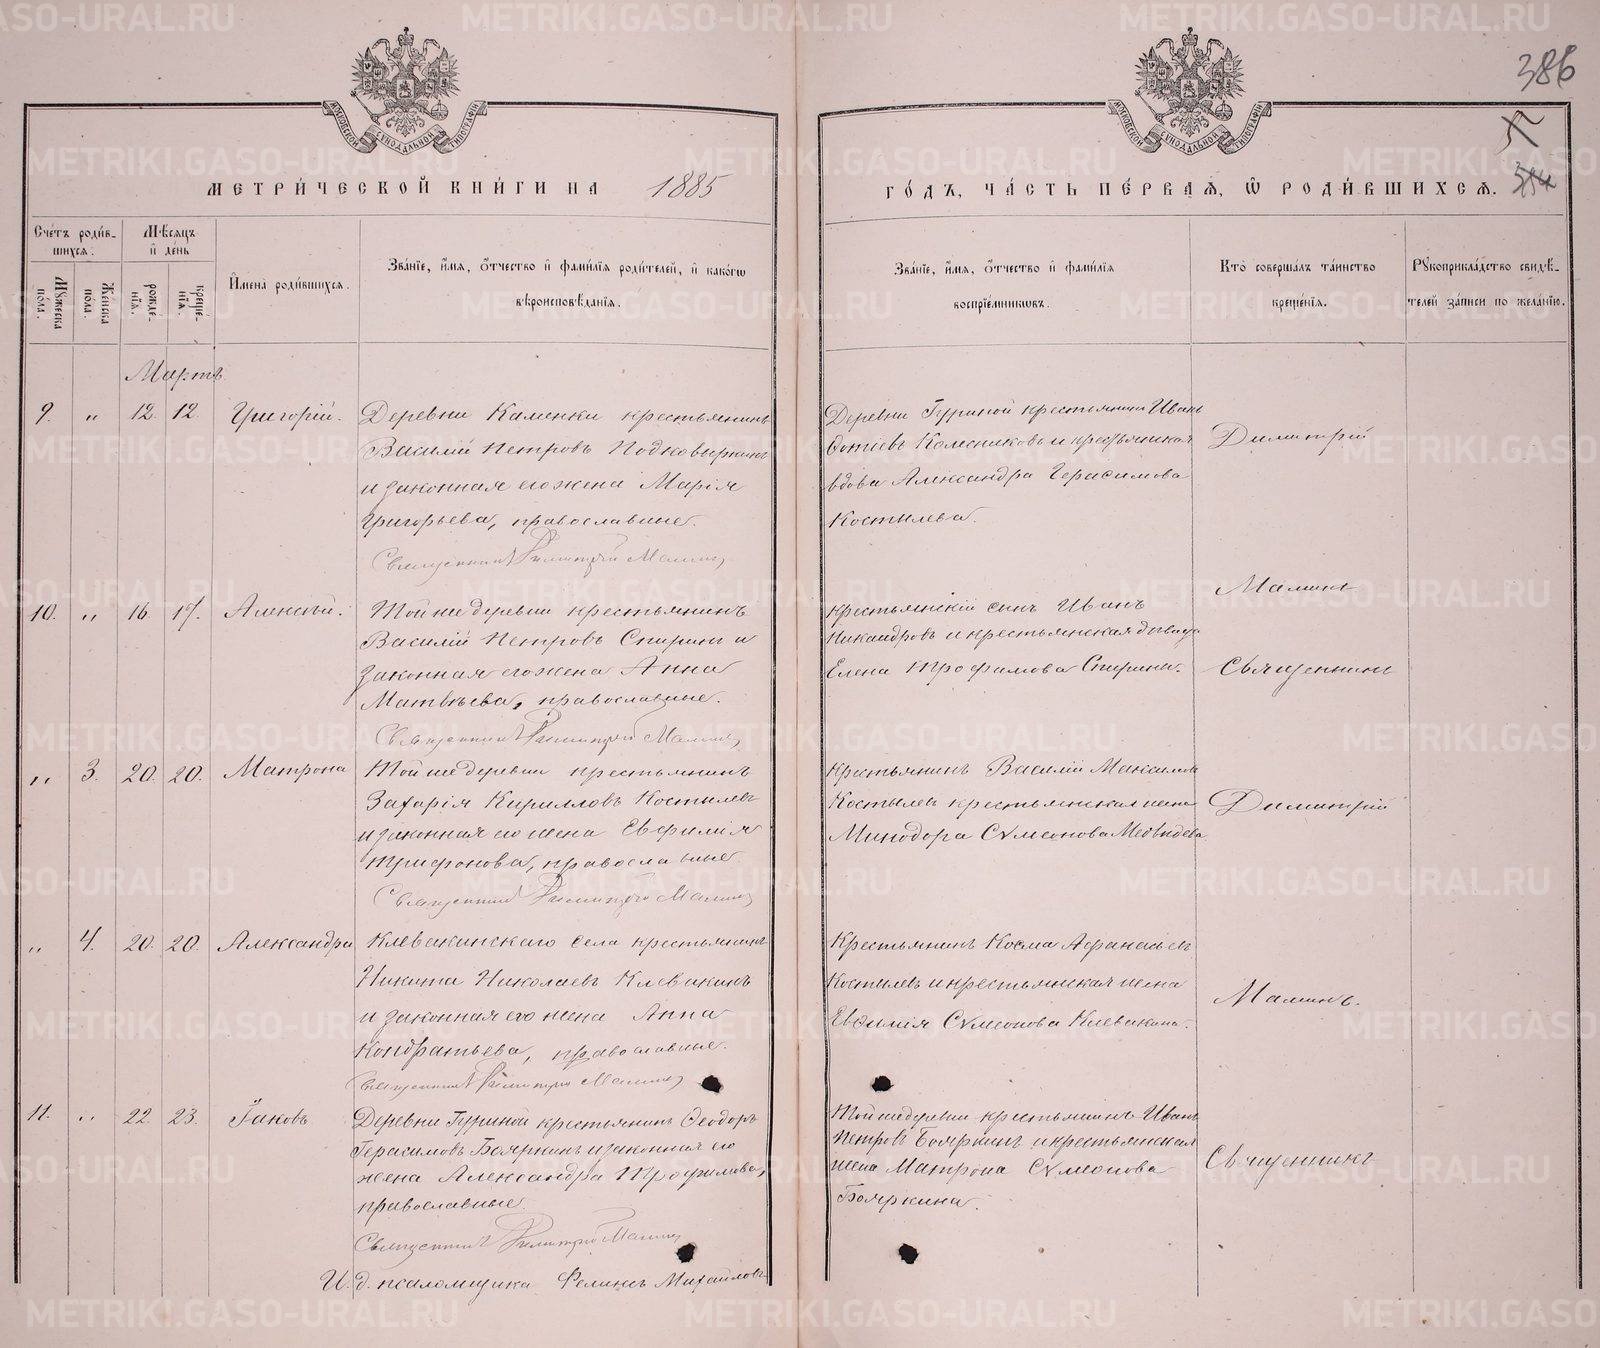 386
МЕТРИ́ЧЕСКОЙ КНИ́ГИ НА 1885
ГО́ДЪ, ЧА́СТЬ ПЕ́РВАѦ, Ѽ РОДИ́ВШИХСѦ.
Сче́тъ роди́в-
шихсѧ.
Мꙋжеска по́ла.
Же́нска по́ла.
Мѣ́сѧцъ
и҆ де́нь
рожде́-
нїѧ.
креще́-
нїѧ.
И҆мена̀ роди́вшихсѧ.
Зва́нїе, и҆́мѧ, ѻ҆́тчество и҆ фами́лїѧ роди́телей, и҆ како́гѡ
вѣроисповѣ́данїѧ.
Зва́нїе, и҆́мѧ, ѻ҆́тчество и҆ фами́лїѧ
воспрїе́мникѡвъ.
Кто̀ соверша́лъ та́инство
креще́нїѧ.
Рꙋкоприкла́дство свидѣ́-
телей за́писи по жела́нїю.
Мартъ
9. " 12. 12. Григорій.
Деревни Каменки крестьянинъ
Василій Петровъ Подковыркинъ
и законная его жена Марія
Григорьева, православные.
Священникъ Димитрій Маминъ
Деревни Гуриной крестьянинъ Иванъ
Колесниковъ и крестьянская
вдова Александра Герасимова
Костылева.
Димитрій
10. " 16. 17. Алексѣй.
Той же деревни крестьянинъ
Василій Петровъ Спиринъ и
законная его жена Анна
Матвѣева, православные.
Священникъ Димитрій Маминъ
Крестьянскій сынъ Иванъ
Никандровъ и крестьянская дѣвица
Елена Трофимова Спирины.
Маминъ
Священникъ
" 3. 20. 20. Матрона
Той же деревни крестьянинъ
Захарія Кирилловъ Костылевъ
и законная его жена Евфимія
Трифонова, православные.
Священникъ Димитрій Маминъ
Крестьянинъ Василій Максимовъ
Костылевъ крестьянская жена
Минодора Сѵмеонова Медвѣдева
Димитрій
" 4. 20. 20. Александра
Клевакинскаго села крестьянинъ
Никита Николаевъ Клевакинъ
и законная его жена Анна
Кондратьева, православные.
Священникъ Димитрій Маминъ
Крестьянинъ Косма Афанасьевъ
Костылевъ и крестьянская жена
Евфимія Сѵмеонова Клевакина.
Маминъ.
11. " 22. 23. Іаковъ
Деревни Гуриной крестьянинъ Ѳеодоръ
Герасимовъ Бояркинъ и законная его
жена Александра Трофимова,
православные.
Священникъ Димитрій Маминъ
Той же деревни крестьянинъ Иванъ
Петровъ Бояркинъ и крестьянская
жена Матрона Сѵмеонова
Бояркина.
Священникъ
И. д. псаломщика Феликсъ Михайловъ
METRIKI.GASO-URAL.RU